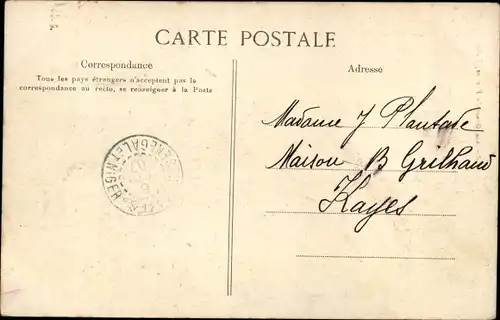 CARTE POSTALE
Correspondance
Tous les pays étrangers n'acceptent pas la
correspondance au recto, se renseigner à la Poste
Adresse
Madame J Plantade
Maison B Grilhaud
Kayes
SENEGAL ET NIGER